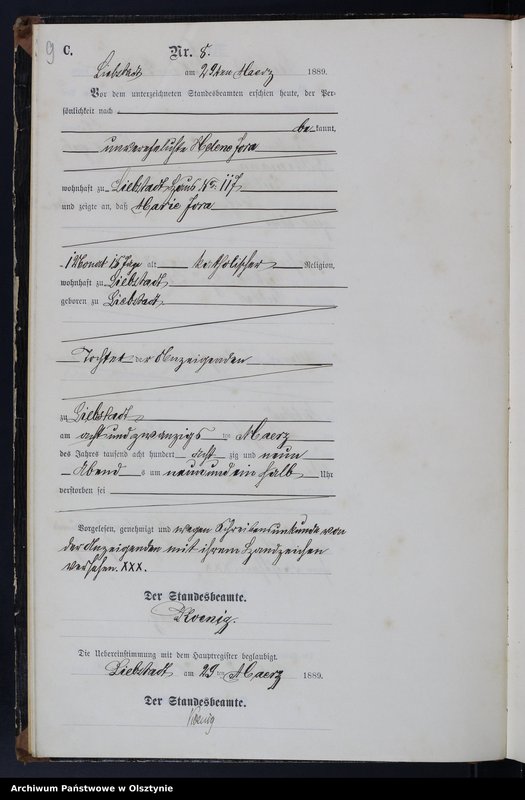 9
C.
Nr. 8.
Liebstadt am 29ten Maerz 1889.
Vor dem unterzeichneten Standesbeamten erschien heute, der Per-
sönlichkeit nach
be kannt,
unverehelichte Helene Jora
wohnhaft zu Liebstadt Haus No. 117
und zeigte an, daß Marie Jora
1 Monat 15 Tage alt katholischer Religion,
wohnhaft zu Liebstadt
geboren zu Liebstadt,
Tochter der Anzeigenden
zu Liebstadt
am acht und zwanzigs ten Maerz
des Jahres tausend acht hundert acht zig und neun
Abend s um neun und ein halb Uhr
verstorben sei
Vorgelesen, genehmigt und wegen Schreibensunkunde von
der Anzeigenden mit ihrem Handzeichen
versehen. XXX.
Der Standesbeamte.
Koenig.
Die Uebereinstimmung mit dem Hauptregister beglaubigt.
Liebstadt am 29 ten Maerz 1889.
Der Standesbeamte.
Koenig
Archiwum Państwowe w Olsztynie